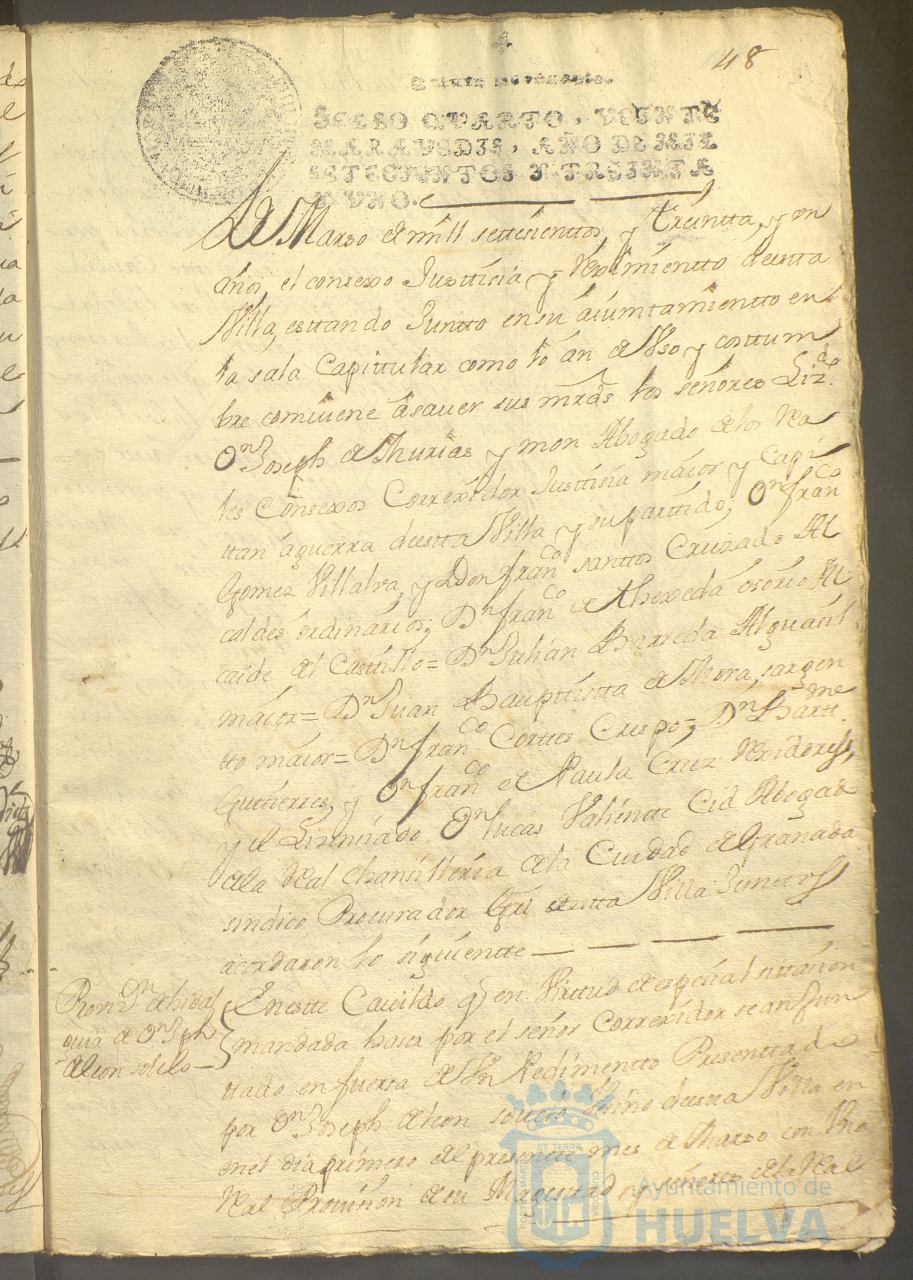 48
SELLO QVARTO, VEINTE
MARAVEDIS, AÑO DE MIL
SETECIENTOS Y TREINTA
Y UNO.
de Marzo de mill settesienttos y Treintta, y un
años, el consexo Justticia y Reximientto deesta
Villa, esttando Juntto en su aiunttamientto en
la sala Capittular como lo án de Vso y costtum
bre combiene asauer sus mrds los señores Lizdo
Dn Joseph de Thurias y mon Abogado de los Rea
les Consexos Correxidor Justticia maior y Capi
ttan aguerra deestta Villa y su parttido, Dn Franco
Gomez Villalva, y Don Franco santtos Cruzado Al
caldes ordinarios; Dn Franco de Thexeda osorio Al
caide del Casttillo = Dn Julian Barreda Alguasil
maior = Dn Juan Bauptistta de Mora, sargen
tto maior = Dn Franco Corttes Crespo = Dn Bartme
Gutierres, y Dn Franco de Paula Cruz Rexidores,
y el Lizenciado Dn Lucas Valiente Cid Abogado
dela Real chansilleria dela Ciudad de Granada
sindico Procurador Grl deestta Villa Junttos
acordaron lo siguientte
Provizn de hidal
guia de Dn Jph
de leon sotelo
En estte Cauildo q en Virttud de espesial sittasion
mandada haser por el señor Correxidor se an jun
ttado en fuersa de Un Pedimentto Presenttado
por Dn Joseph de leon sotelo Vezino deesta Villa en
en el dia primero del presentte mes de Marzo con Una
Real Provision de su Magestad y señores dela Real
Ayuntamiento de
HUELVA